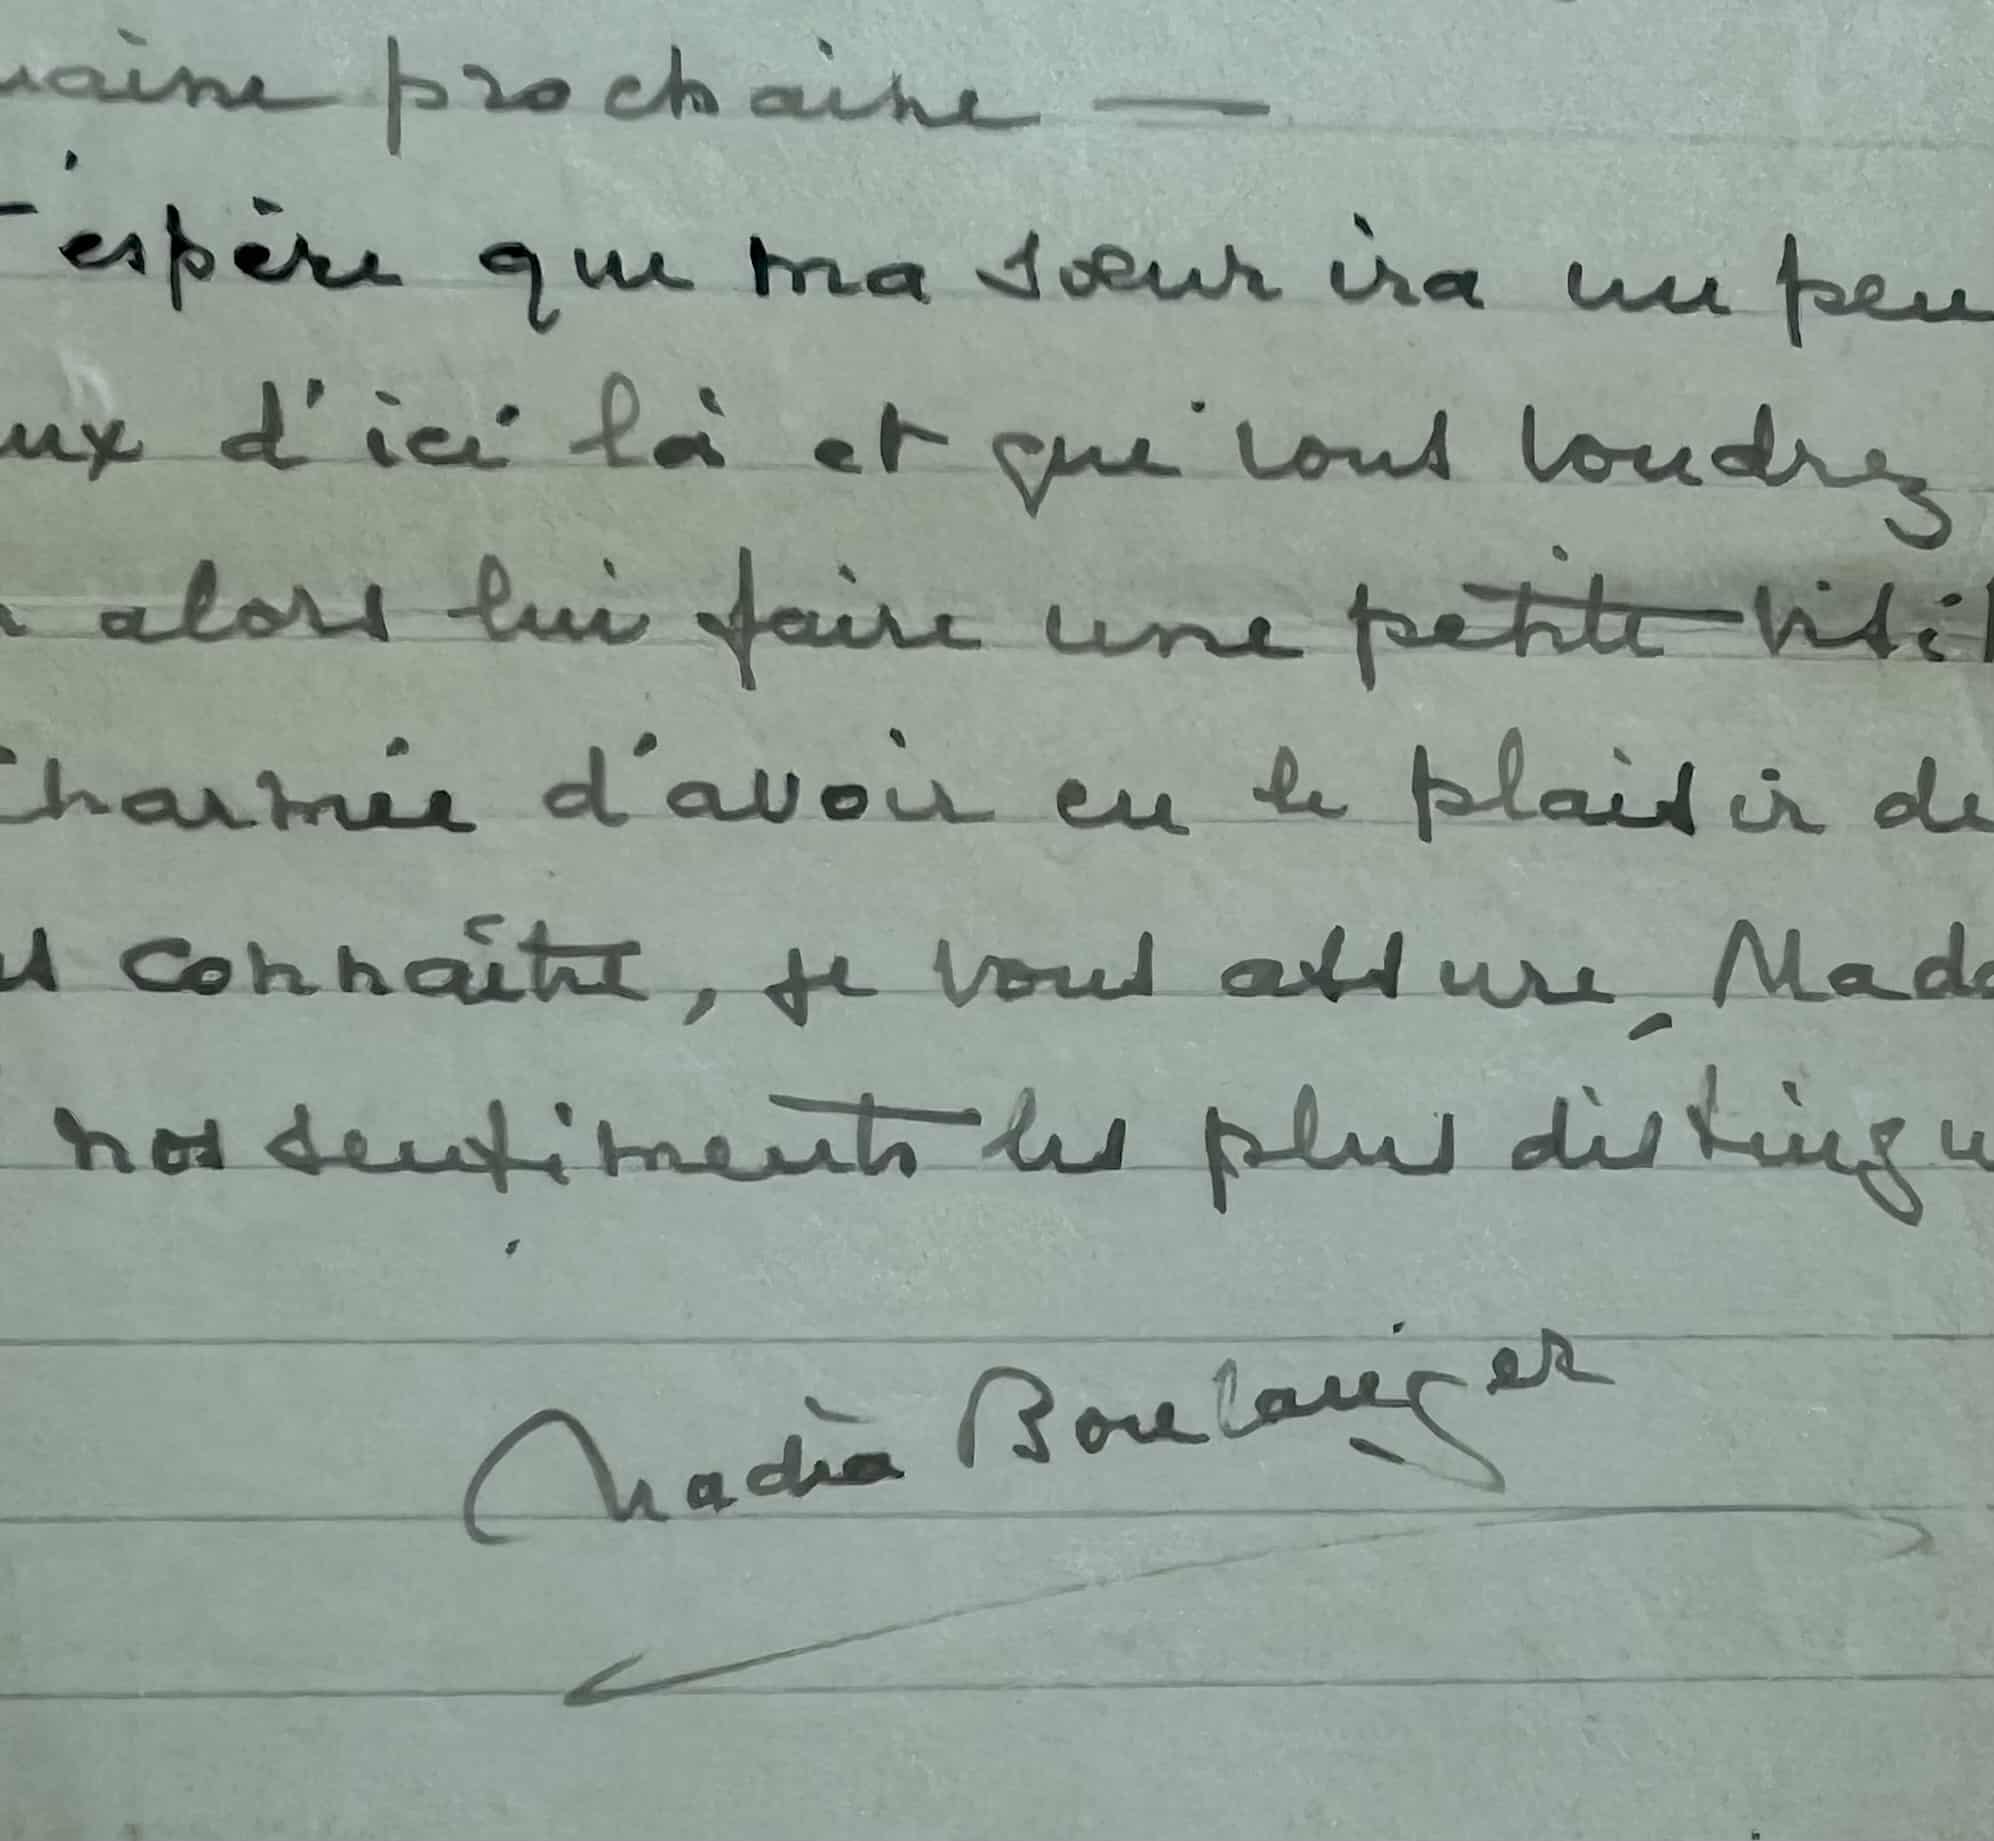 maine prochaine —
J'espère que ma sœur ira un peu
eux d'ici là et que vous voudrez
alors lui faire une petite visit
Charmée d'avoir eu le plaisir de
us connaître, je vous assure, Mada
nos sentiments les plus distingu
Nadia Boulanger